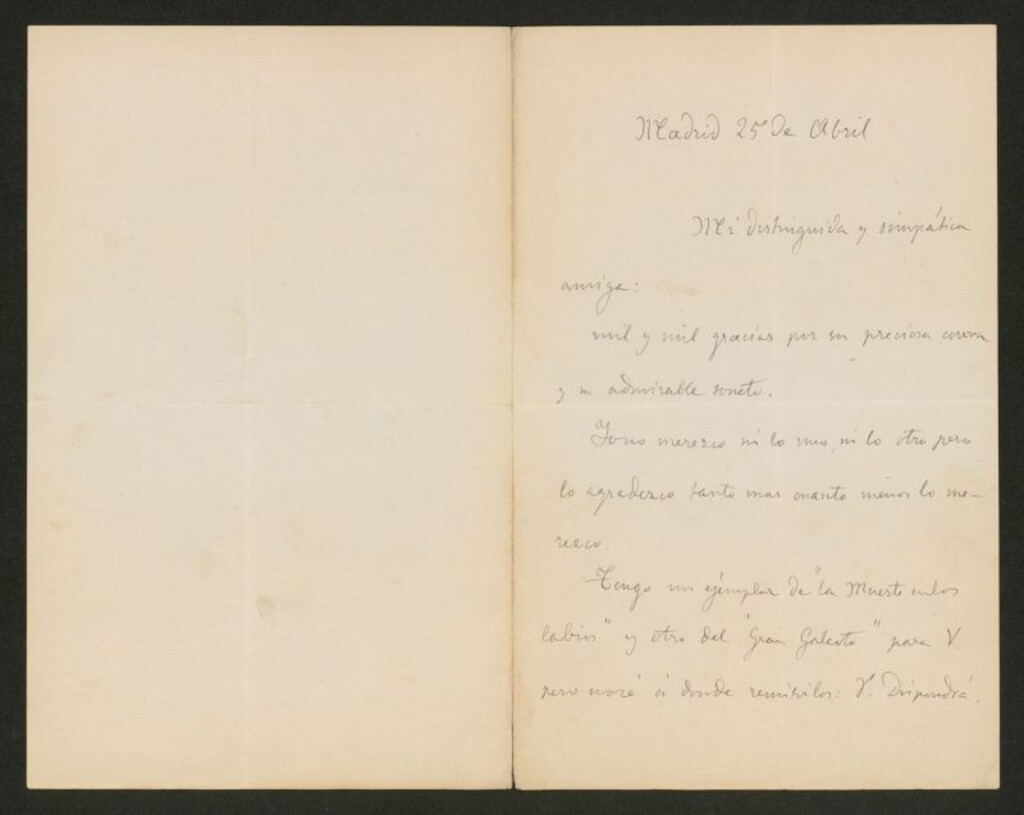 Madrid 25 de Abril
Mi distinguida y simpática
amiga:
mil y mil gracias por su preciosa corona
y su admirable soneto.
Yo no merezco ni lo uno, ni lo otro pero
lo agradezco tanto mas cuanto menos lo me-
rezco.
Tengo un ejemplar de "la Muerte en los
labios" y otro del "Gran Galeoto" para V
pero no sé á donde remitirlos: V. Dispondrá.